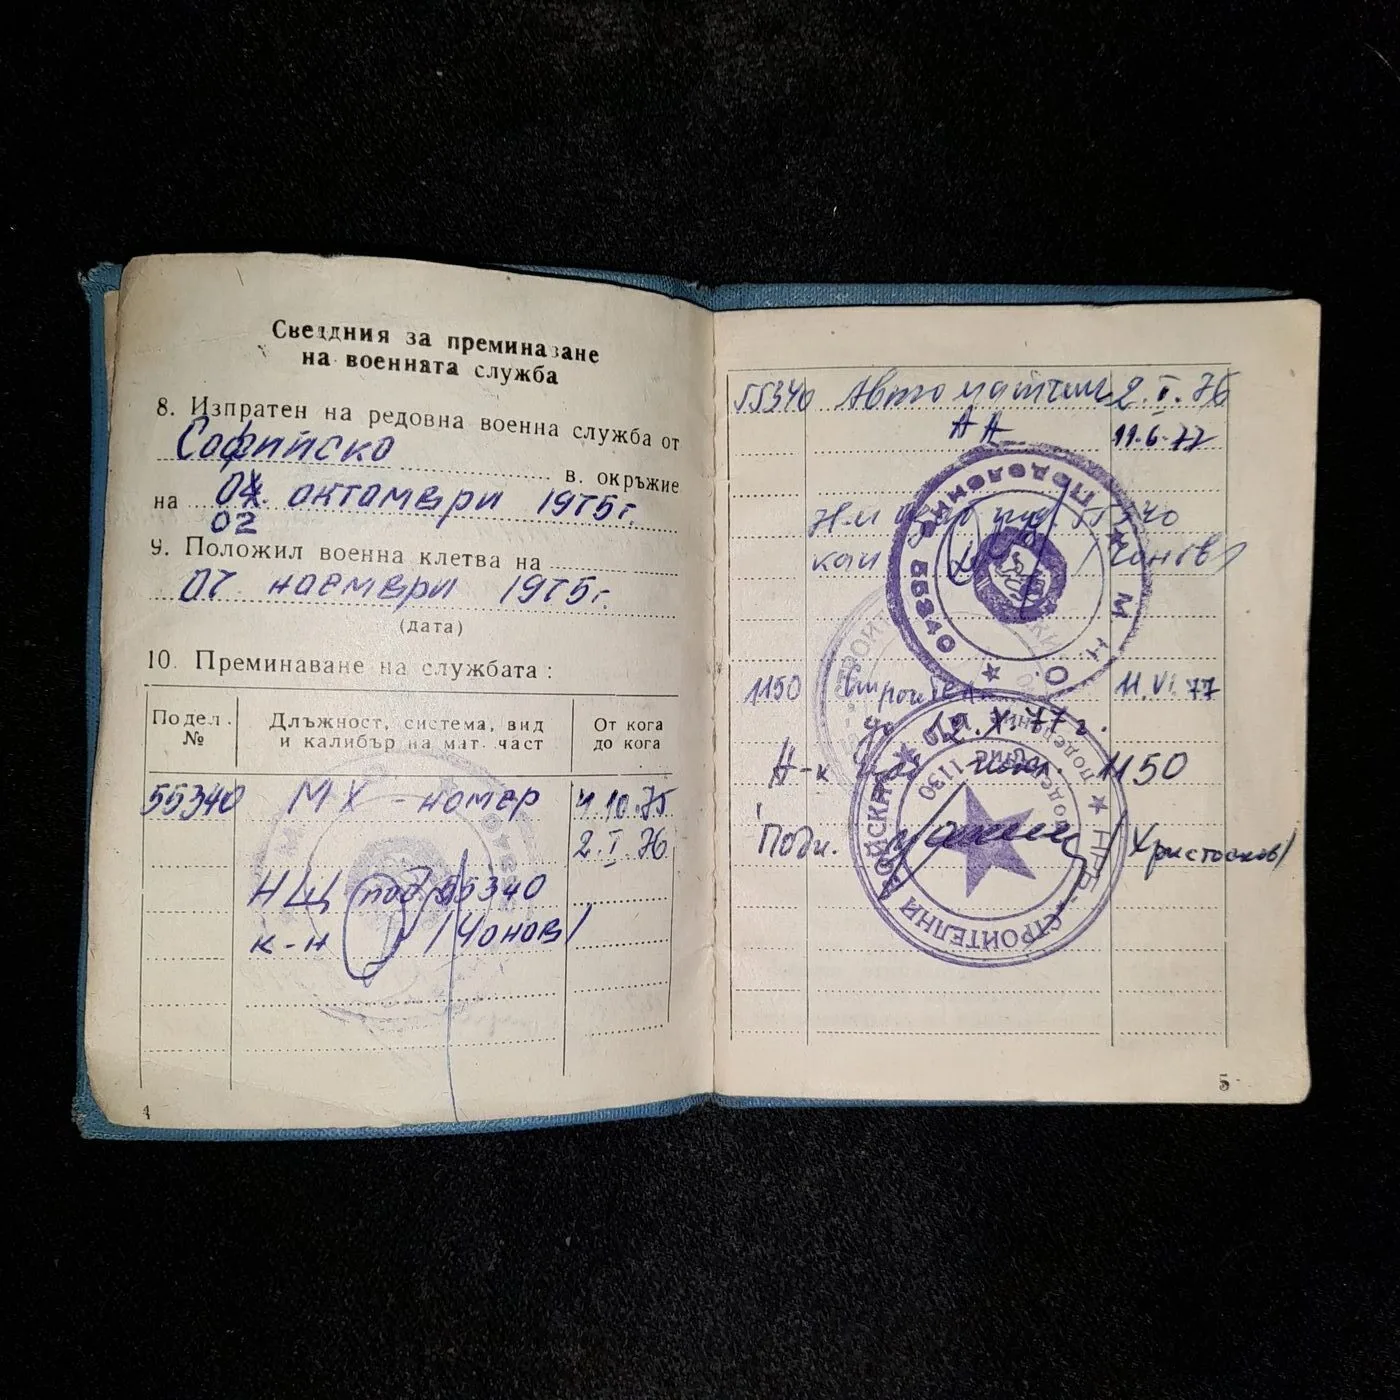 Сведдния за преминазане
на военната служба
8. Изпратен на редовна военна служба от
Софийско
в. окръжие
на 04. октомври 1975г.
02
9. Положил военна клетва на
07 ноември 1975г.
(дата)
10. Преминаване на службата :
Подел. № Длъжност, система, вид и калибър на мат. част От кога до кога
55340 МХ - номер 4.10.75
2.I.76
НЩ под 55340
к-н /Чонов/
4
55340 Автоматчик 2.I.76
АК 11.6.77
под. 55340
кап /Чонов/
ПОДЕЛЕНИЕ 55340 ★ М Н О
1150 Строител 11.VI.77
до 12.X.77 г.
Н-к под. 1150
Подп. /Христосков/
НРБ - СТРОИТЕЛНИ ВОЙСКИ
5